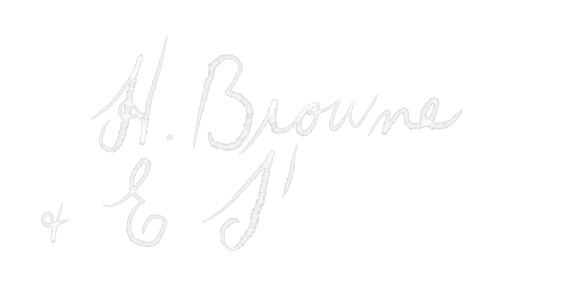 H. Browne
& E